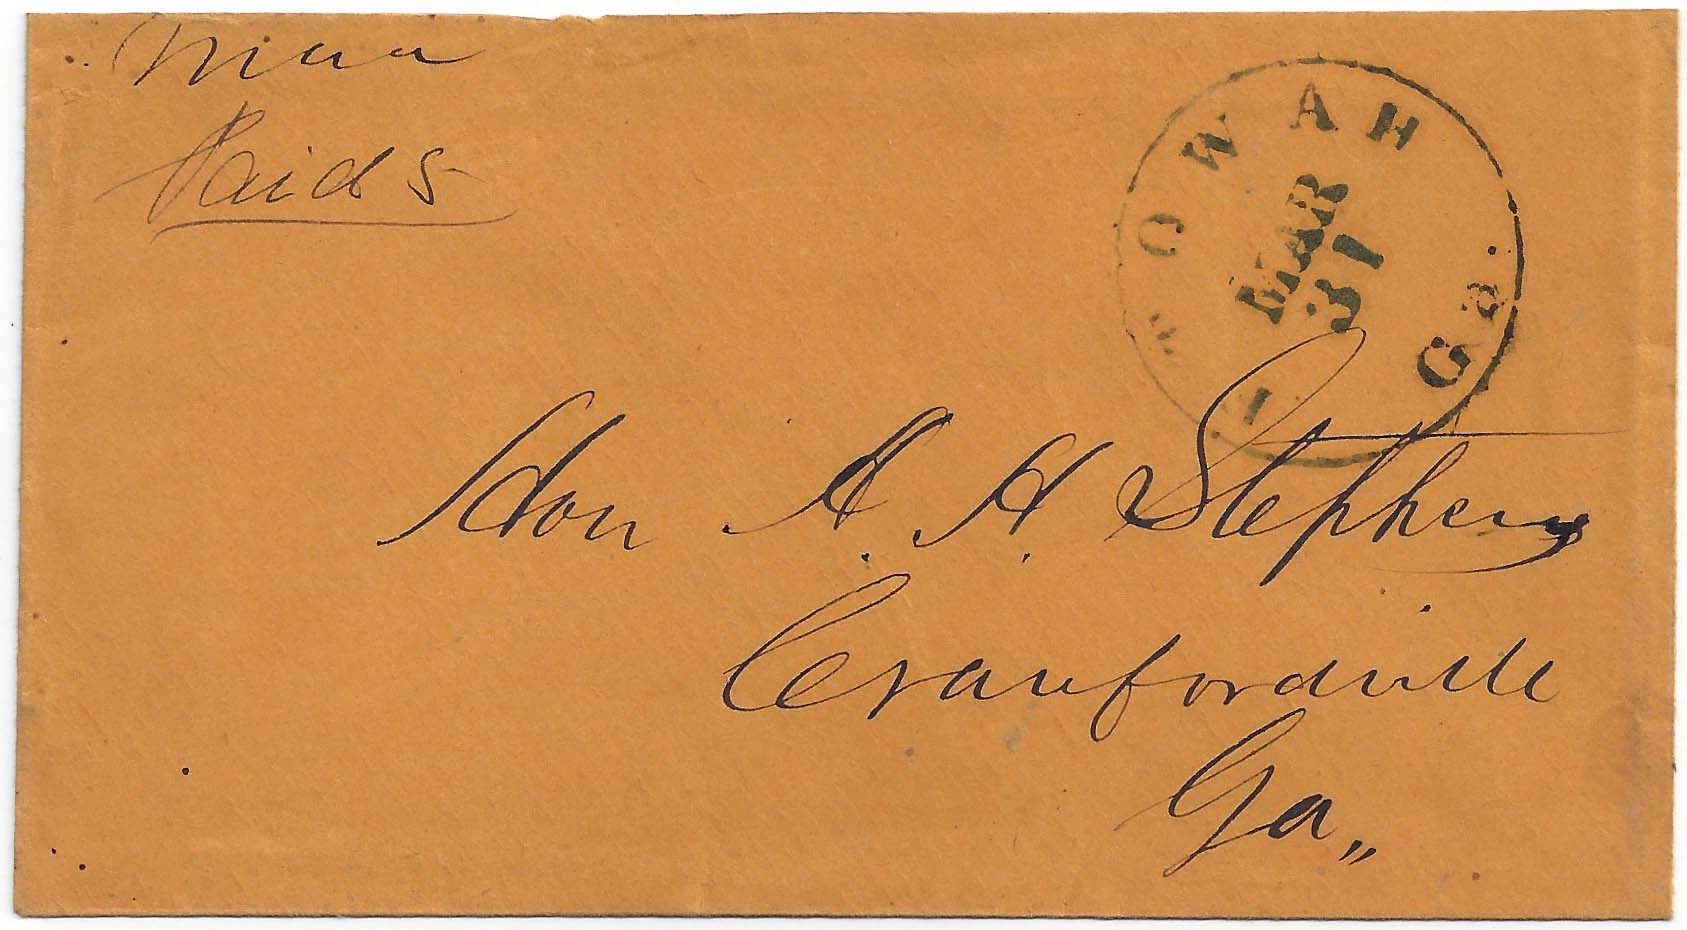 Paid 5
ETOWAH Ga.
MAR
31
Hon A. H. Stephens
Crawfordville
Ga,,